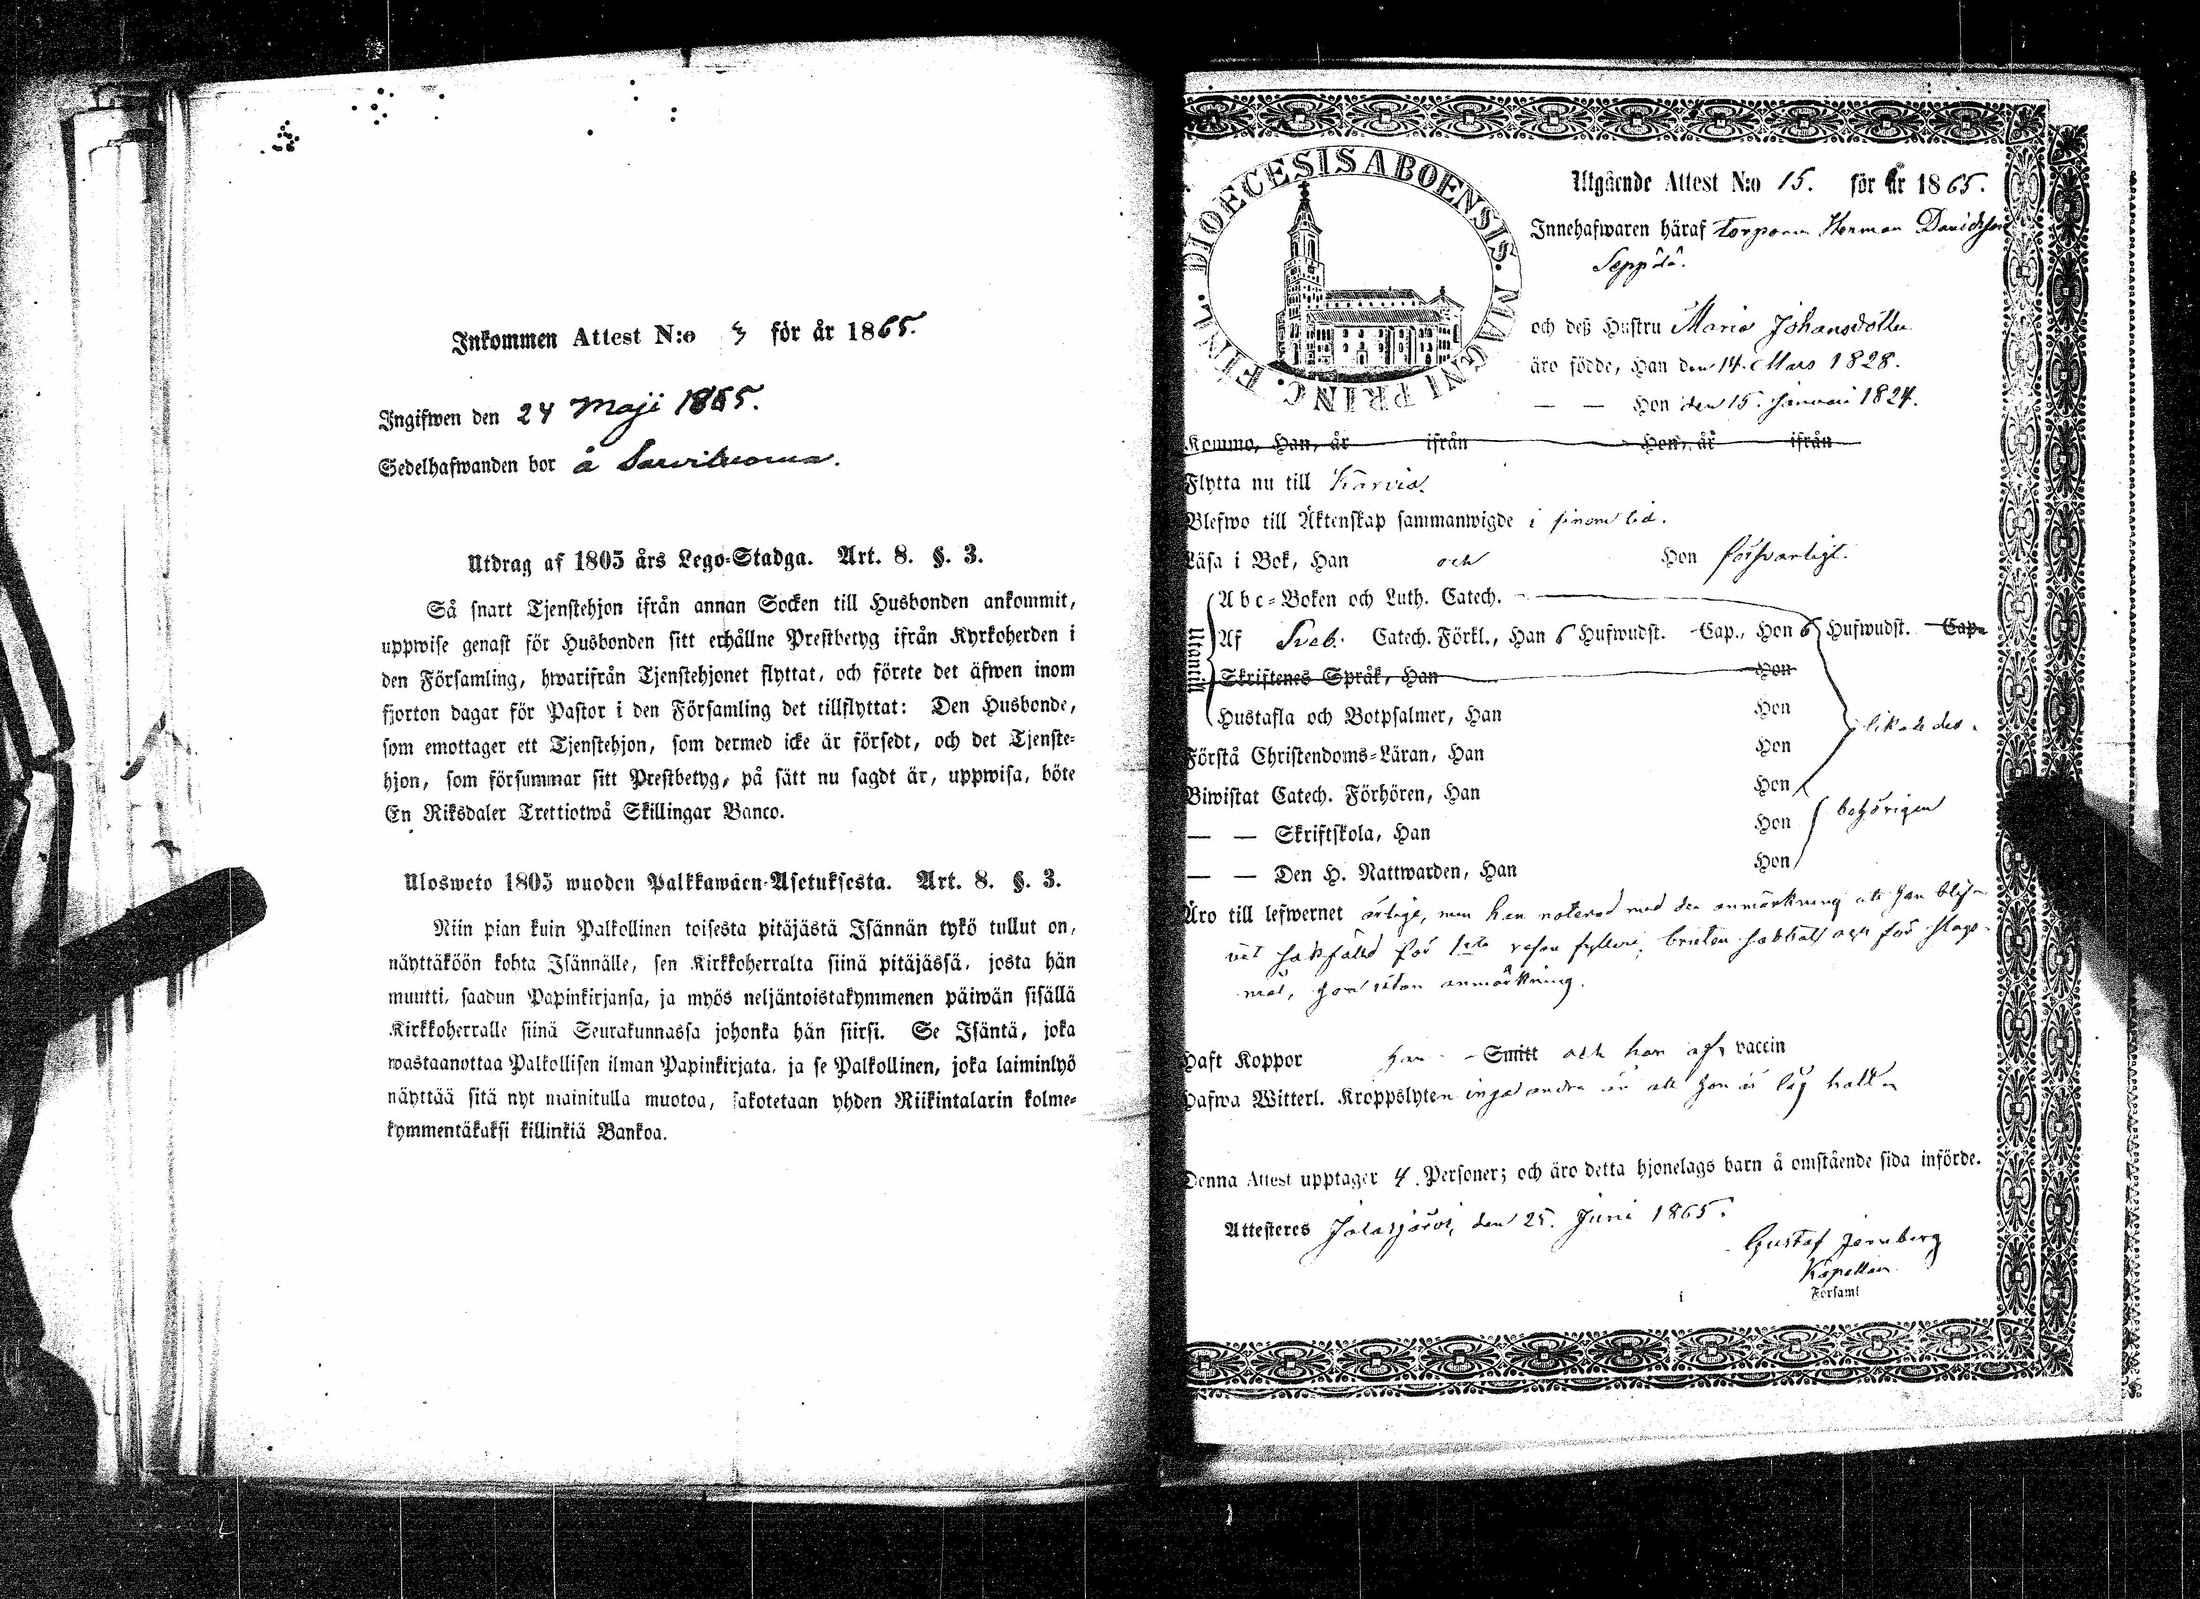 Inkommen Attest N:o 3 för år 1865.
Ingifwen den 24 Maji 1865.
Sedelhafwanden bor å Sarvituoma.
Utdrag af 1805 års Lego-Stadga. Art. 8. §. 3.
Så snart Tjenstehjon ifrån annan Socken till Husbonden ankommit,
uppwise genast för Husbonden sitt erhållne Prestbetyg ifrån Kyrkoherden i
den Församling, hwarifrån Tjenstehjonet flyttat, och förete det äfwen inom
fjorton dagar för Pastor i den Församling det tillflyttat: Den Husbonde,
som emottager ett Tjenstehjon, som dermed icke är försedt, och det Tjenste-
hjon, som försummar sitt Prestbetyg, på sätt nu sagdt är, uppwisa, böte
En Riksdaler Trettiotwå Skillingar Banco.
Ulosweto 1805 wuoden Palkkawäen-Asetuksesta. Art. 8. §. 3.
Niin pian kuin Palkollinen toisesta pitäjästä Isännän tykö tullut on,
näyttäköön kohta Isännälle, sen Kirkkoherralta siinä pitäjässä, josta hän
muutti, saadun Papinkirjansa, ja myös neljäntoistakymmenen päiwän sisällä
Kirkkoherralle siinä Seurakunnassa johonka hän siirsi. Se Isäntä, joka
wastaanottaa Palkollisen ilman Papinkirjata, ja se Palkollinen, joka laiminlyö
näyttää sitä nyt mainitulla muotoa, sakotetaan yhden Riikintalarin kolme-
kymmentäkaksi killinkiä Bankoa.
DIOECESIS ABOENSIS. MAGNI PRINC. FINL.
Utgående Attest N:o 15. för år 1865.
Innehafwaren häraf torparen Herman Davidsson
Seppälä.
och deß Hustru Maria Johansdotter
äro födde, Han den 14. Mars 1828.
— — Hon den 15. Januari 1824.
Kommo, Han, år ifrån Hon, år ifrån
Flytta nu till Karvia.
Blefwo till Äktenskap sammanwigde i
Läsa i Bok, Han och Hon försvarligt.
Utantill
Abc-Boken och Luth. Catech.
Af Sveb. Catech. Förkl., Han 6 Hufwudst. Cap., Hon 6 Hufwudst. Cap.
Skriftenes Språk, Han Hon
Hustafla och Botpsalmer, Han Hon
likaledes.
Förstå Christendoms-Läran, Han Hon
Biwistat Catech. Förhören, Han Hon
— — Skriftskola, Han Hon
behörigen
— — Den H. Nattwarden, Han Hon
Äro till lefwernet ärliga, men han noterad med den anmärkning att han blif-
vit sakfälld för 1sta resan fylleri, bruten sabbat och för slags-
mål, hon utan anmärkning.
Haft Koppor hon Smitt och han af vaccin
Hafwa Witterl. Kroppslyten inga andra än att hon är låg halt
Denna Attest upptager 4. Personer; och äro detta hjonelags barn å omstående sida införde.
Attesteres Jalasjärvi, den 25. Juni 1865.
Gustaf
Kapellan
i Församl